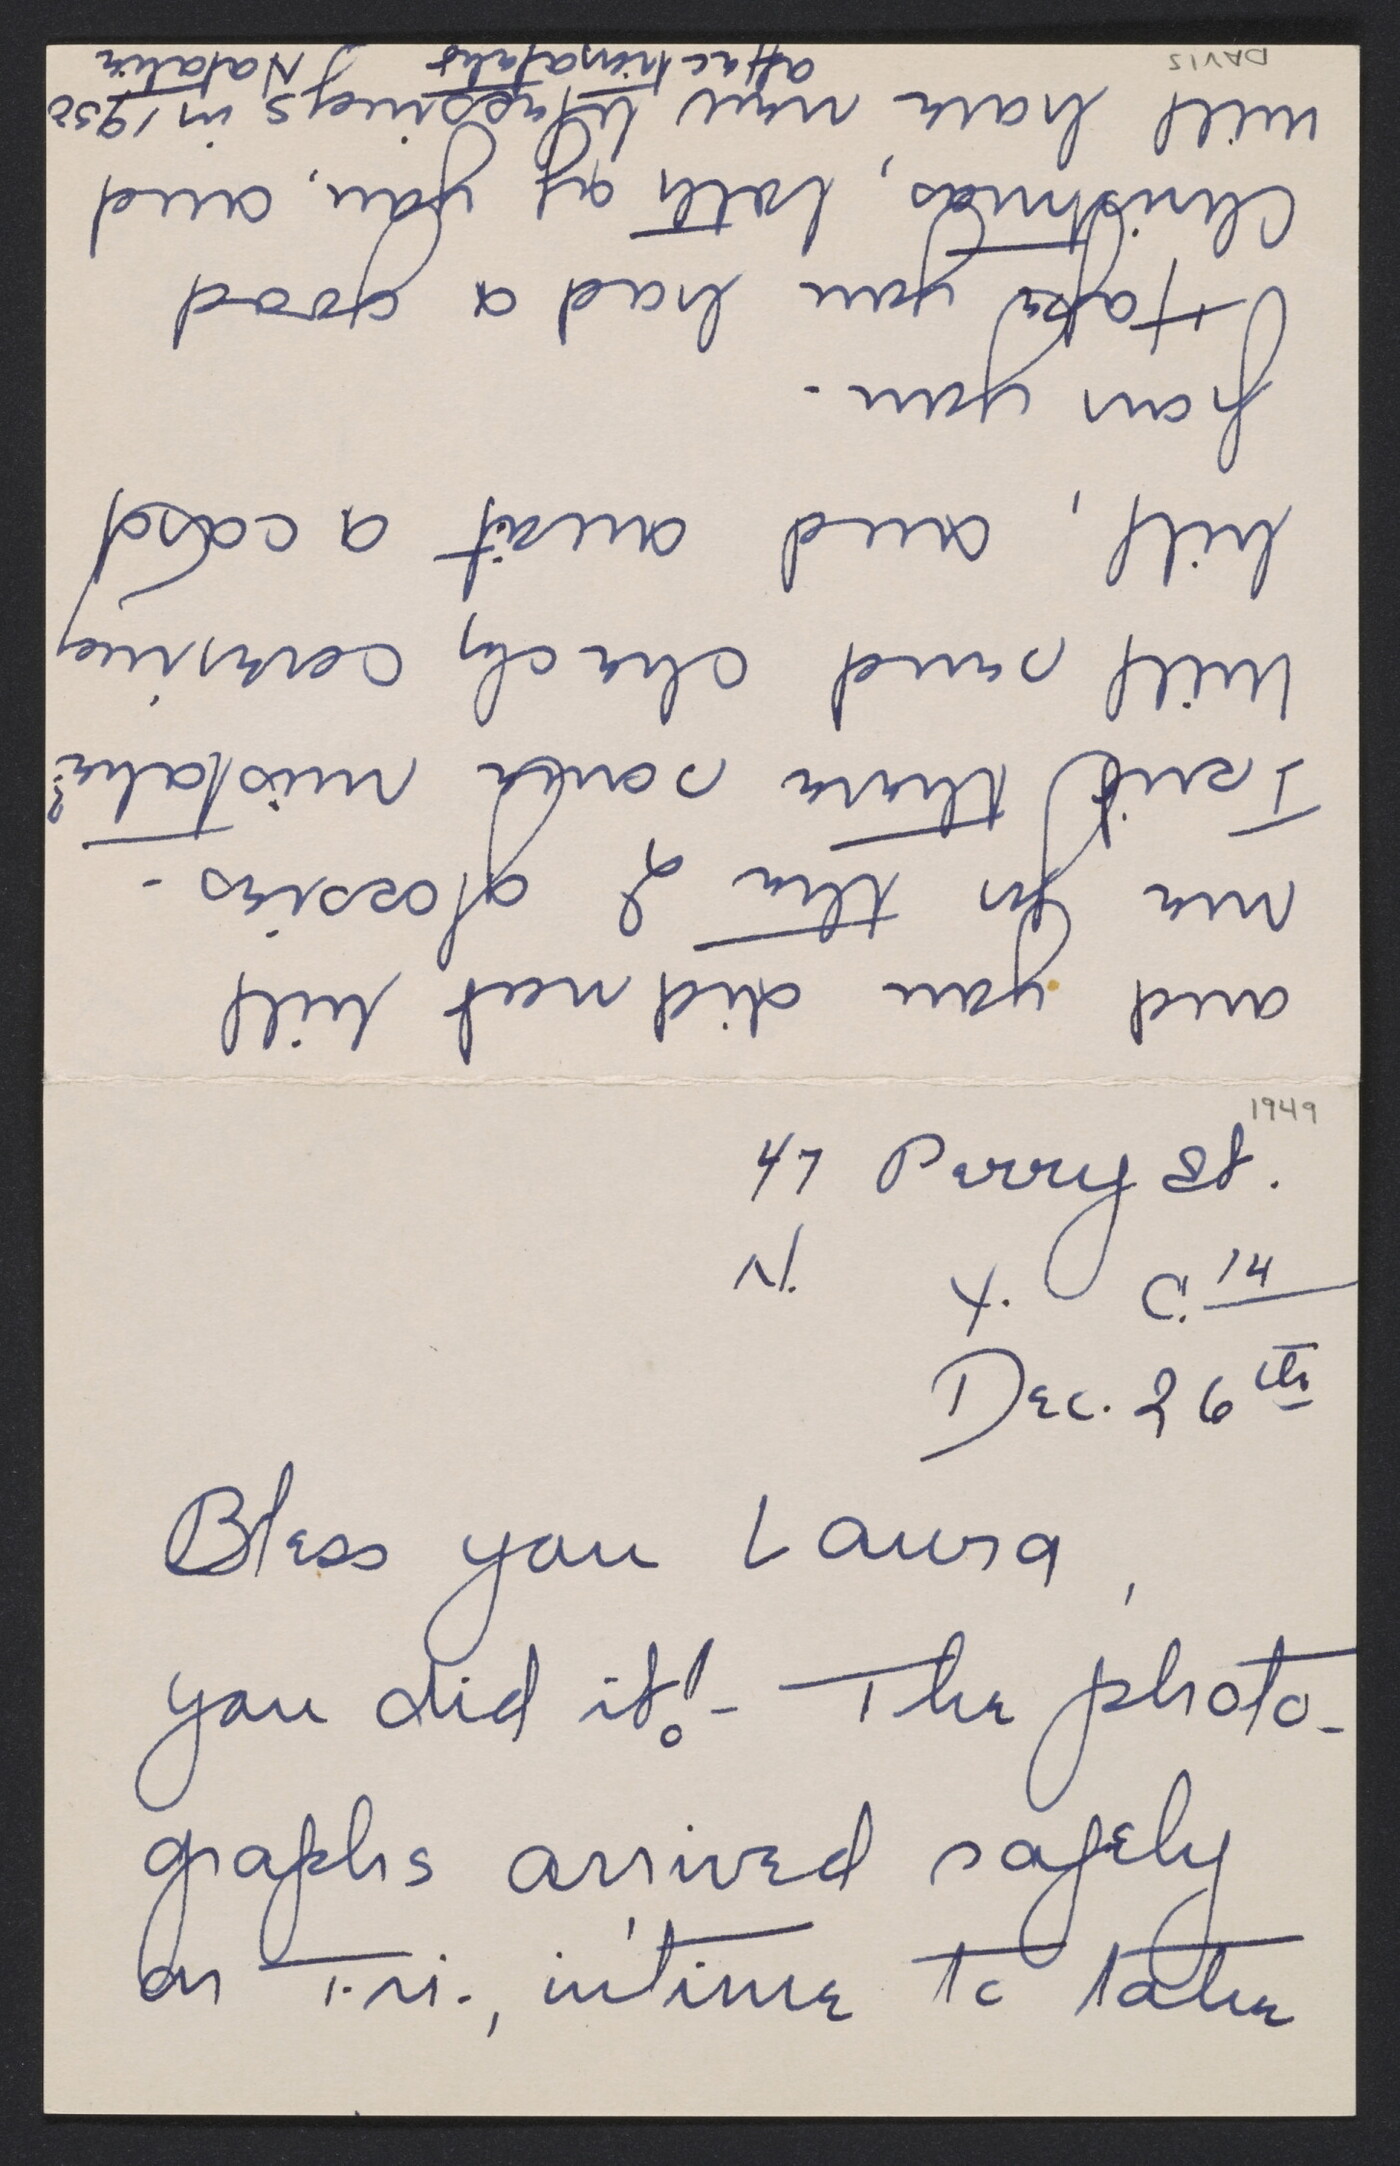 1949
47 Perry St.
N. Y. C. 14
Dec. 26th
Bless you Laura,
you did it! - The photo-
graphs arrived safely
on Fri., in time to take
and you did not bill
me for the 2 glossies. -
Isn't there some mistake?
Will send check, covering
bill, and await a card
from you. -
Hope you had a good
Christmas, both of you, and
will have new blessings in 1950
affectionately Natalie
DAVIS